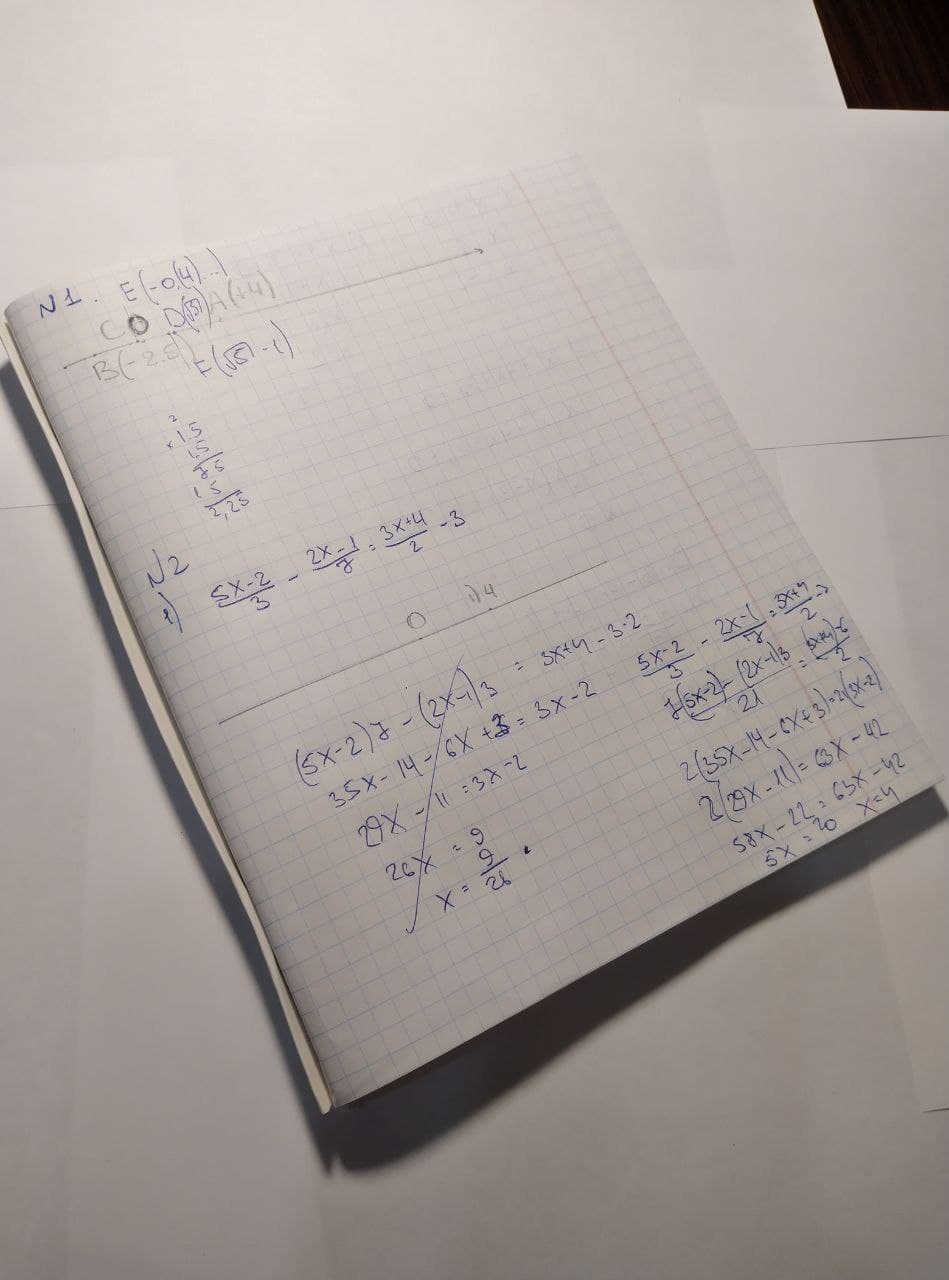 N1. E(-0,(4)...)
C O D(√3) A(+4)
B(-2.5) F(√5-1)
2
×1.5
1.5
75
15
2,25
N2
1) (5x-2)/3 - (2x-1)/7 = (3x+4)/2 - 3
O 1)4
(5x-2)7 - (2x-1)3 = 3x+4-3·2
35x-14-6x+3 = 3x-2
29x-11 = 3x-2
26x = 9
x = 9/26
(5x-2)/3 - (2x-1)/7 = (3x+4)/2 -3
(7(5x-2)-(2x-1)3)/21 = ((3x+4)-6)/2
2(35x-14-6x+3)=21(3x-2)
2(29x-11)=63x-42
58x-22=63x-42
5x=20 x=4